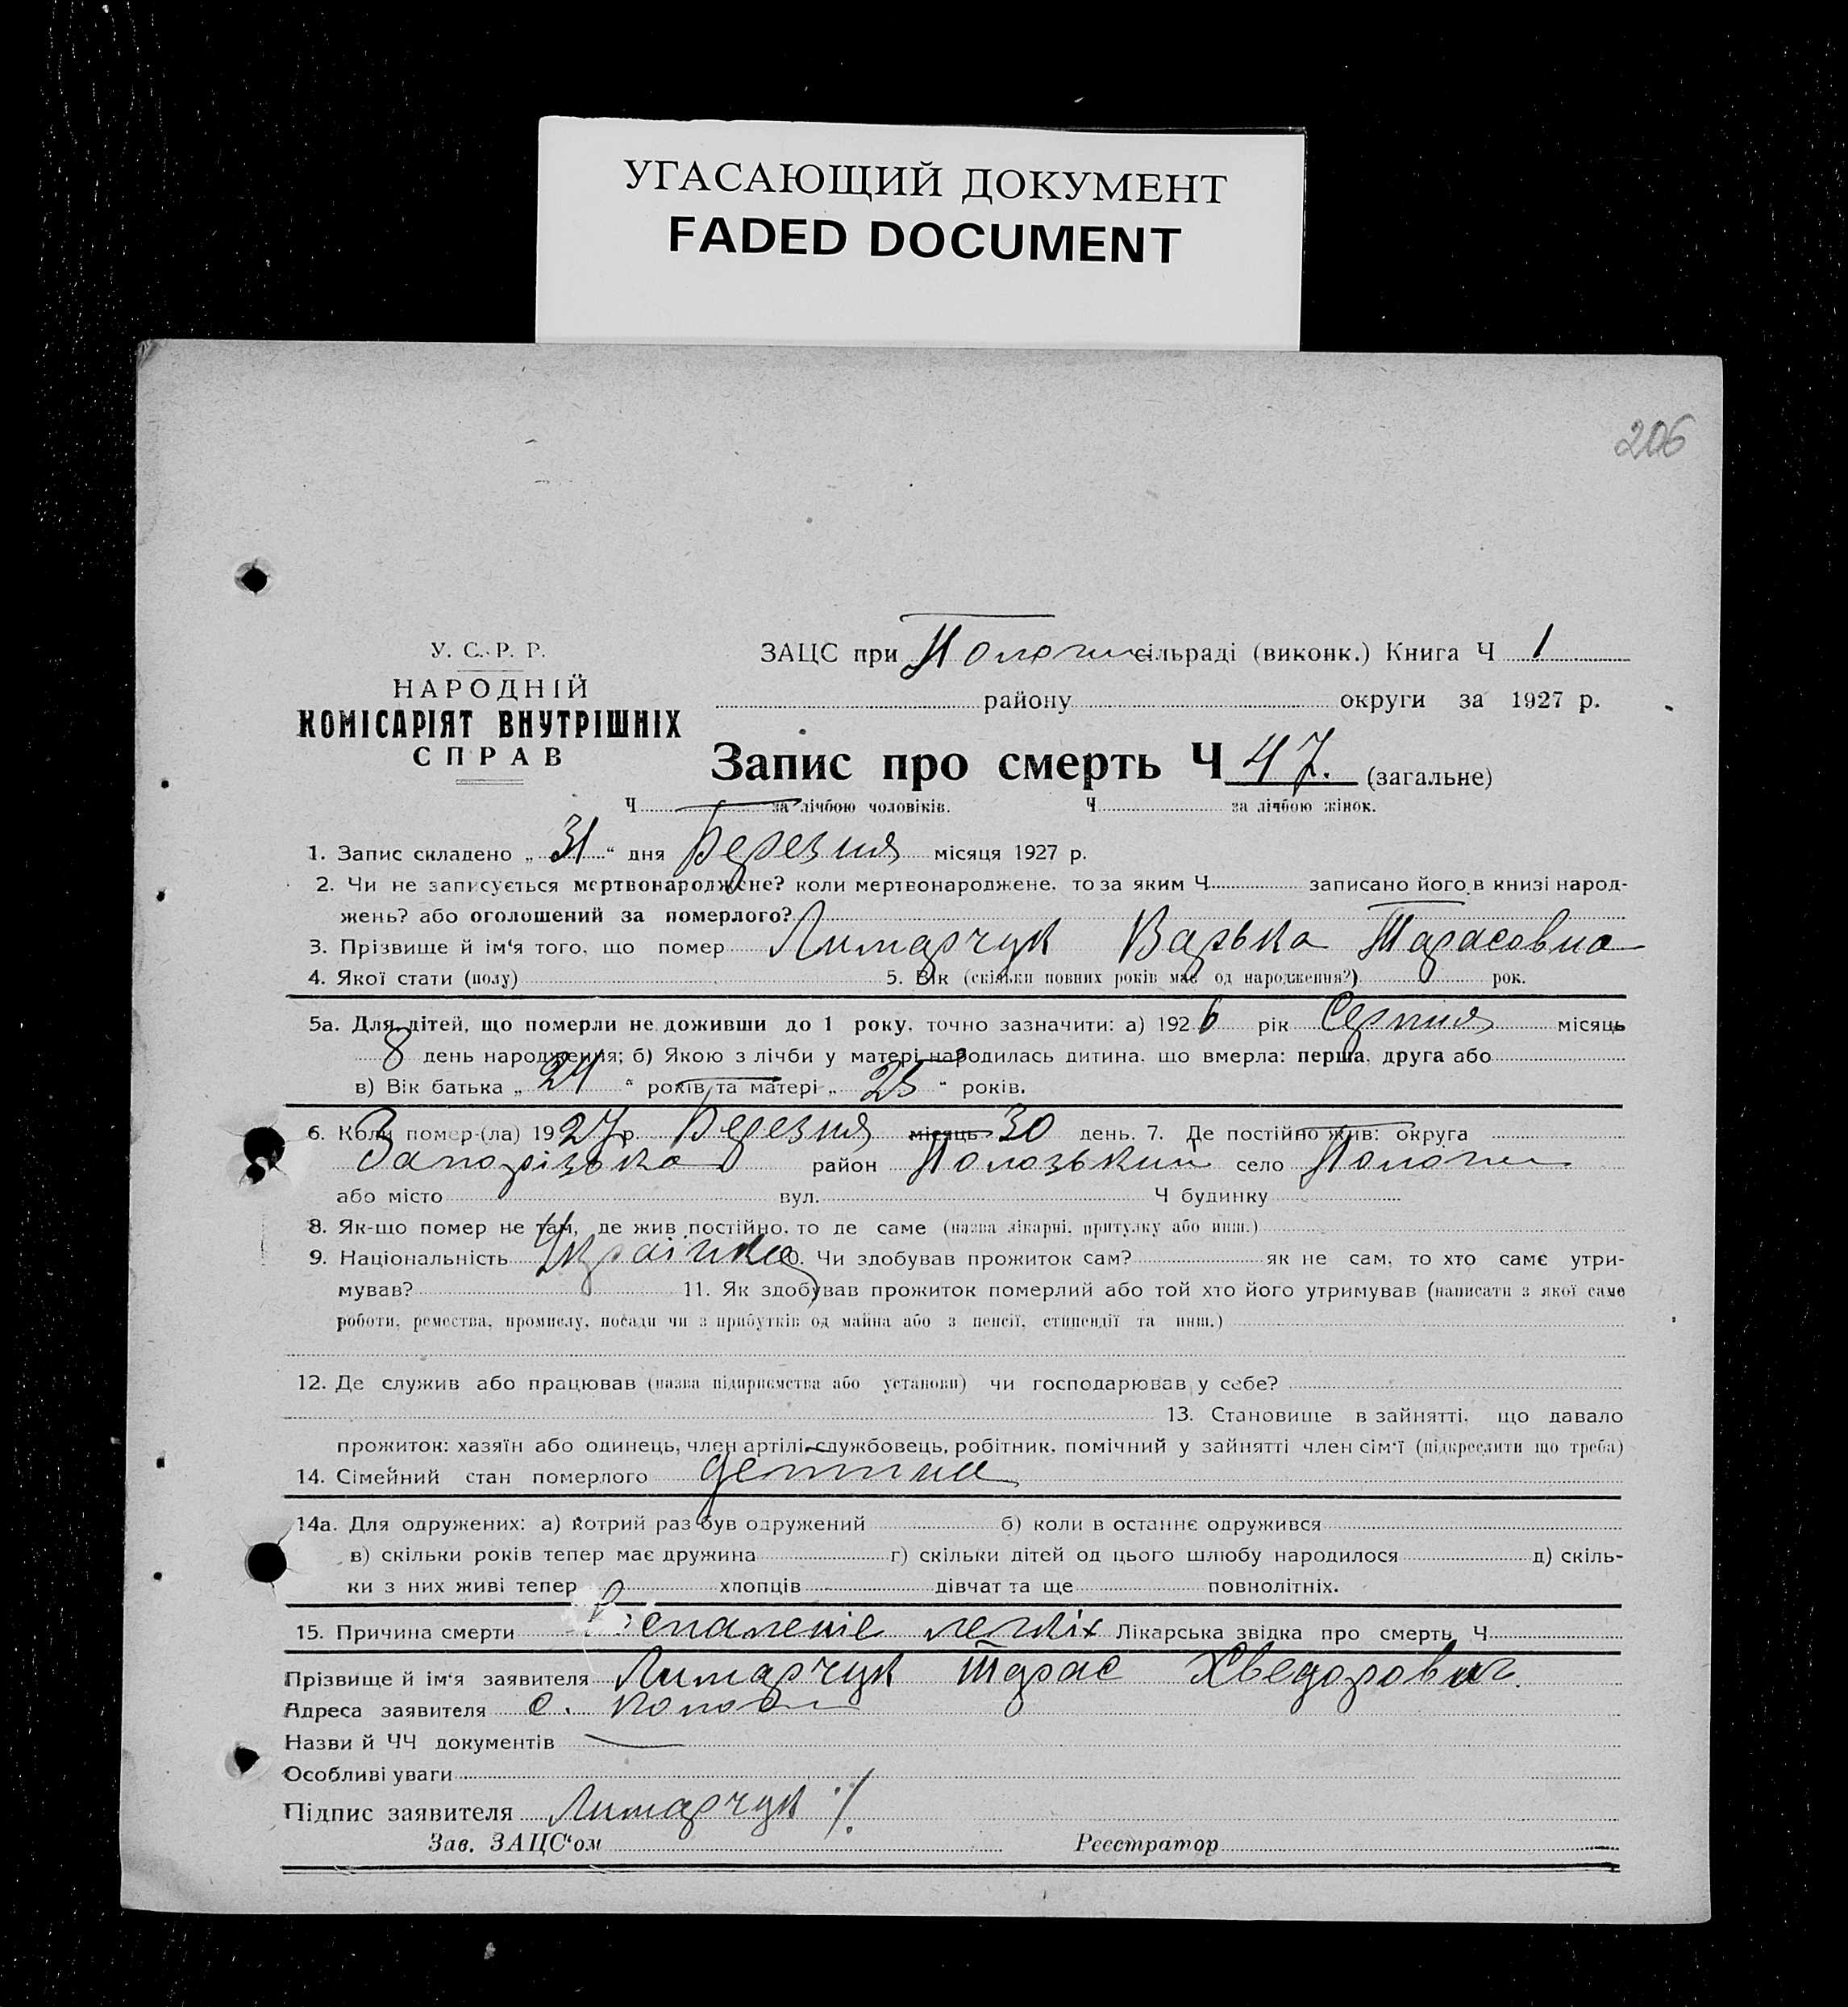 УГАСАЮЩИЙ ДОКУМЕНТ
FADED DOCUMENT
206
У. С. Р. Р.
НАРОДНІЙ
КОМІСАРІЯТ ВНУТРІШНІХ
СПРАВ
ЗАЦС при Пологи сільраді (виконк.) Книга Ч 1
району округи за 1927 р.
Запис про смерть Ч 47. (загальне)
Ч за лічбою чоловіків. Ч за лічбою жінок.
1. Запис складено „ 31 “ дня Березня місяця 1927 р.
2. Чи не записується мертвонароджене? коли мертвонароджене, то за яким Ч записано його в книзі народ-
жень? або оголошений за померлого?
3. Прізвище й ім‘я того, що помер Лимарчук Варька Тарасовна
4. Якої стати (полу) 5. Вік (скільки повних років має од народження?) рок.
5а. Для дітей, що померли не доживши до 1 року, точно зазначити: а) 1926 рік Серпня місяць
8 день народження; б) Якою з лічби у матері народилась дитина, що вмерла: перша, друга або
в) Вік батька „ 24 “ років та матері „ 25 “ років.
6. Коли помер-(ла) 1927 р. Березня місяць 30 день. 7. Де постійно жив: округа
Запорізька район Полозький село Пологи
або місто вул. Ч будинку
8. Як-що помер не там, де жив постійно, то де саме (назва лікарні, притулку або инш.)
9. Національність Українка 10. Чи здобував прожиток сам? як не сам, то хто саме утри-
мував? 11. Як здобував прожиток померлий або той хто його утримував (написати з якої саме
роботи, ремества, промислу, посади чи з прибутків од майна або з пенсії, стипендії та инш.)
12. Де служив або працював (назва підприємства або установи) чи господарював у себе?
13. Становище в зайнятті, що давало
прожиток: хазяїн або одинець, член артілі, службовець, робітник, помічний у зайнятті член сім‘ї (підкреслити що треба)
14. Сімейний стан померлого детина
14а. Для одружених: а) котрий раз був одружений б) коли в останнє одружився
в) скільки років тепер має дружина г) скільки дітей од цього шлюбу народилося д) скіль-
ки з них живі тепер хлопців дівчат та ще повнолітніх.
15. Причина смерти Воспаленіе легкіх Лікарська звідка про смерть Ч
Прізвище й ім‘я заявителя Лимарчук Тарас Хведорович.
Адреса заявителя с. Пологи
Назви й ЧЧ документів —
Особливі уваги
Підпис заявителя Лимарчук
Зав. ЗАЦС‘ом Реєстратор